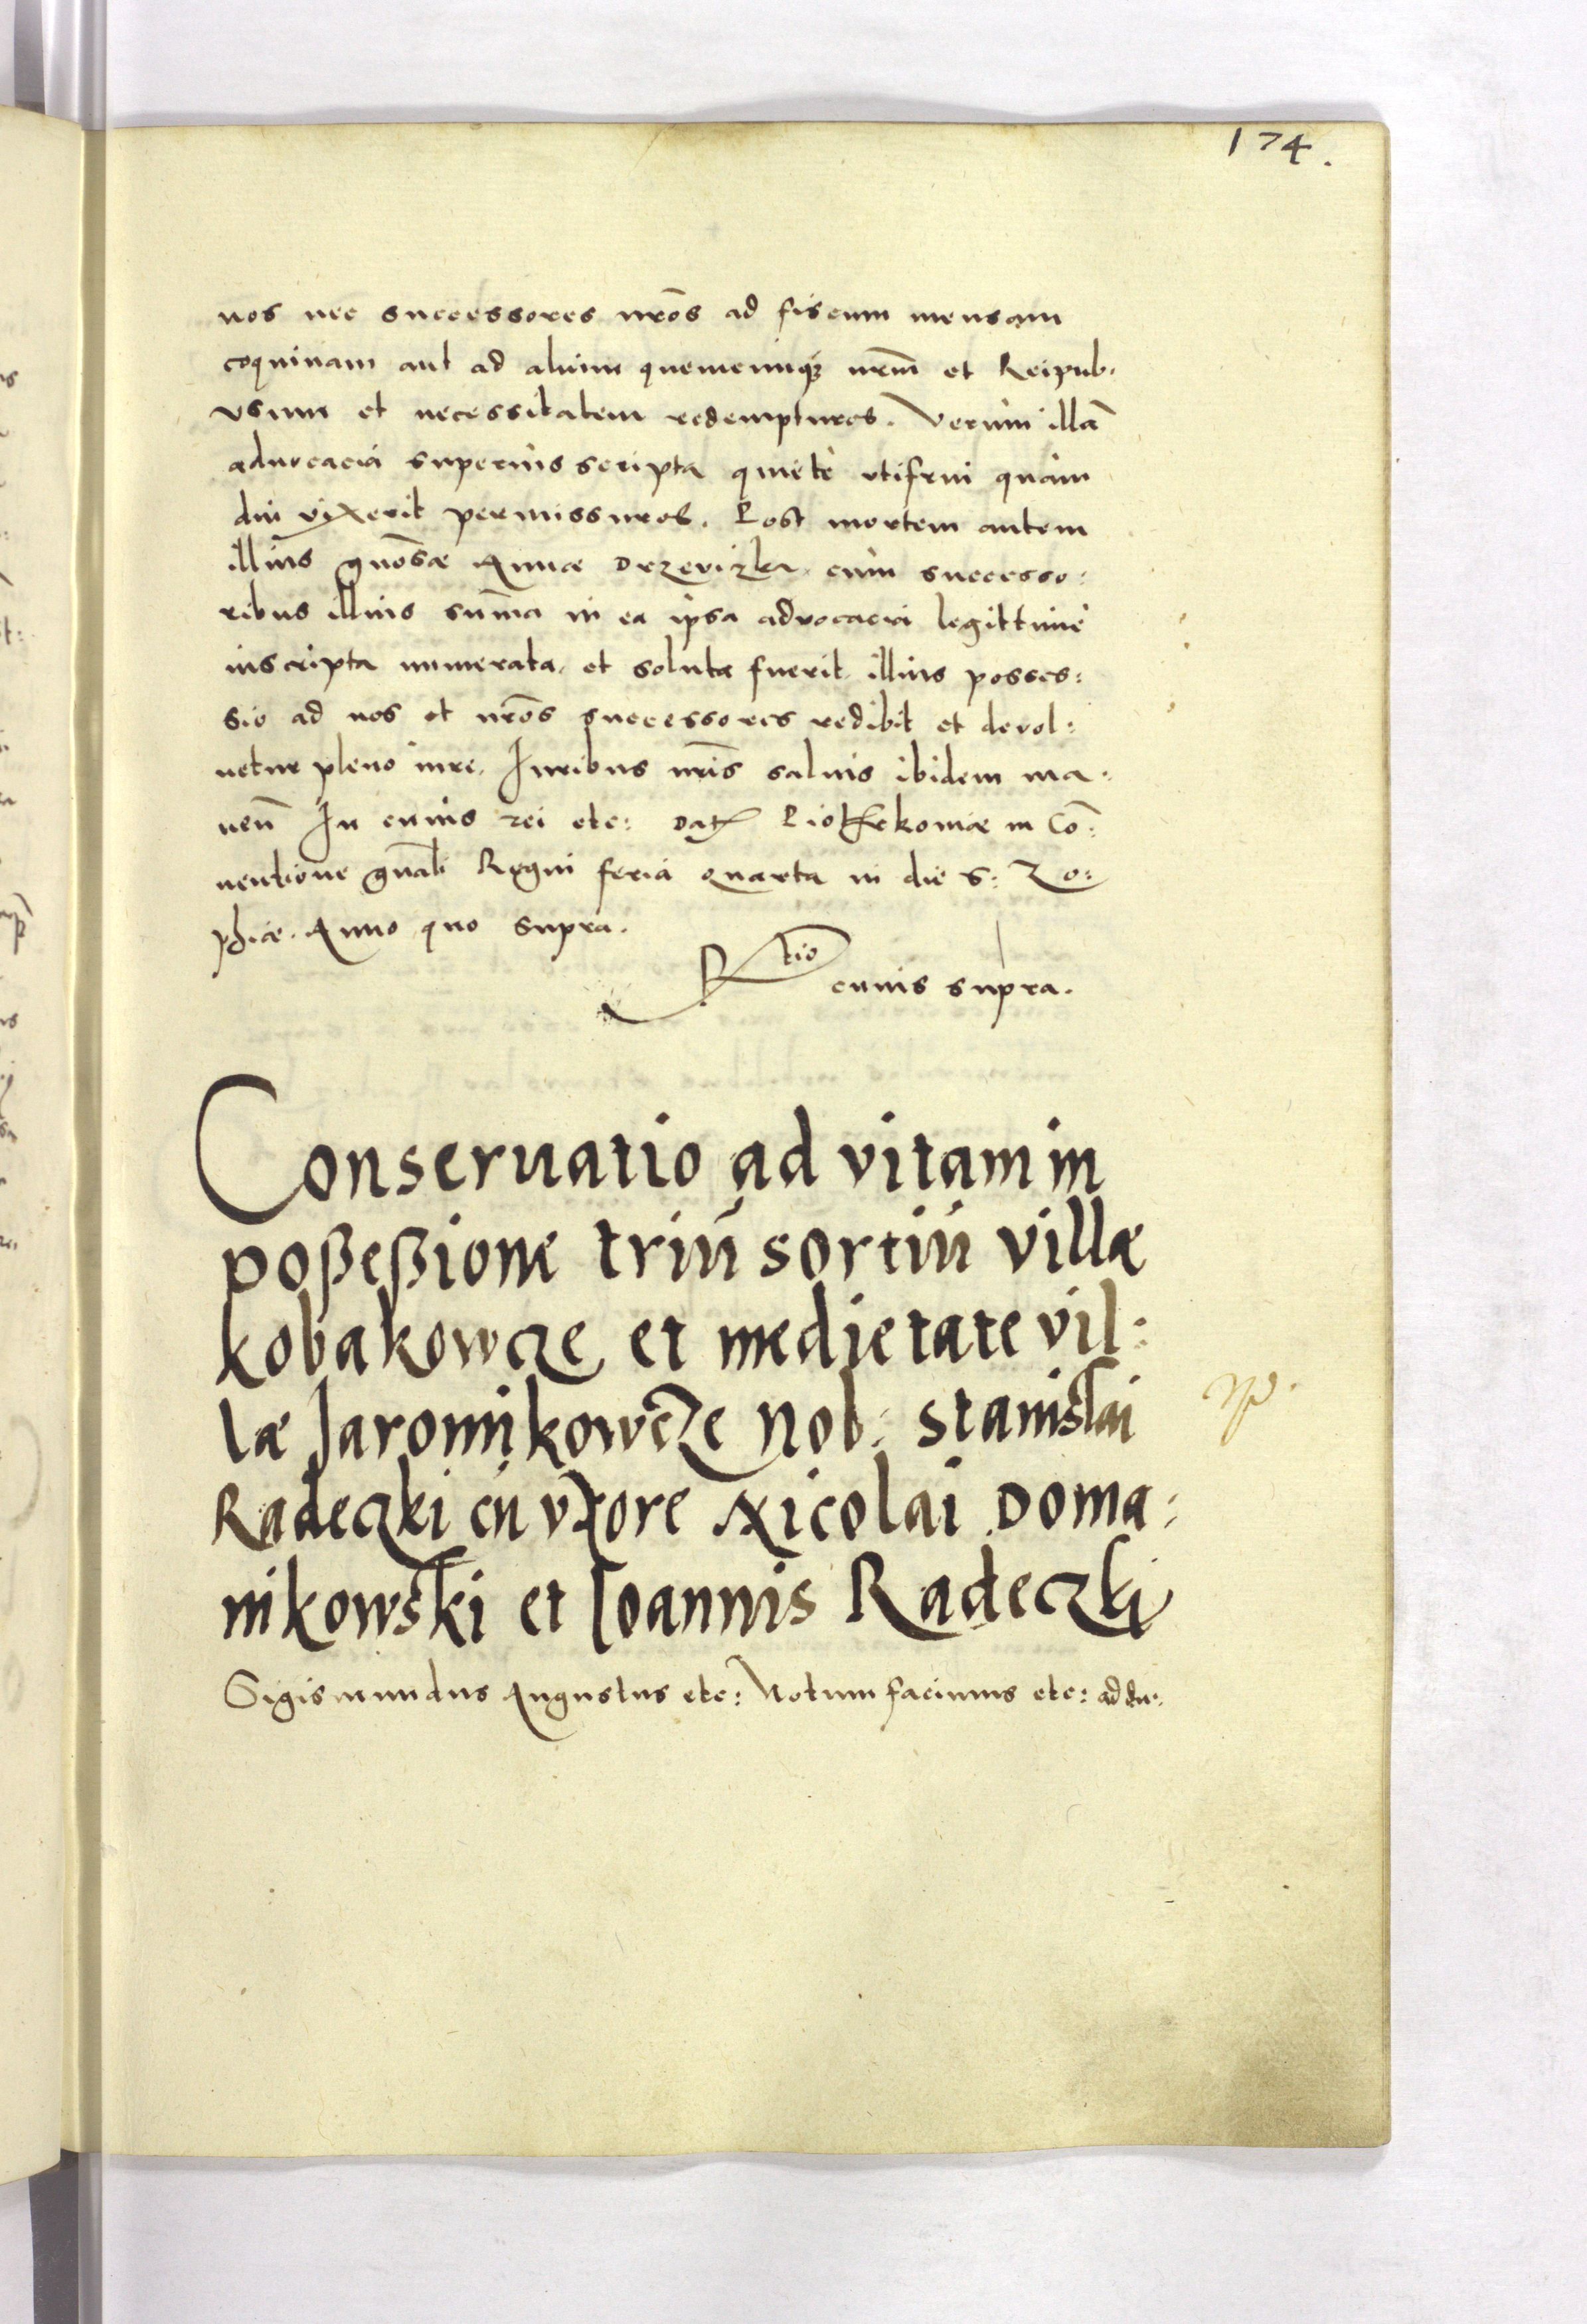 174.
nos nec successores nr̃os ad fiscum mensam
coquinam aut ad alium quemcunq; nr̃m et Reipub.
vsum et necessitatem redempturos. Verum illã
aduocacia superius scripta quiete vtifrui quam
diu vixerit permissuros. Post mortem autem
illius gnõsæ Annæ Drzeviczka cum successo:
ribus illius sum̃a in ea ipsa advocacia legittime
inscripta numerata, et soluta fuerit illius posses:
sio ad nos et nr̃os successores redibit et devol:
uetur pleno iure, Iuribus nr̃is saluis ibidem ma:
nen̄ In cuius rei etc: Dat Piotrkoviæ in Cõ:
uentione gñali Regni feria quarta in die S: Zo:
phiæ. Anno quo supra.
R tio cuius supra.
Conseruatio ad vitam in
poßeßione triũ sortiũ villæ
kobakowcze et medietate vil:
læ Jaromikowcze Nob: Stanislai
Radeczki cũ vxore Nicolai Doma:
nikowski et Joannis Radeczki
Sigismundus Augustus etc: Notum facimus etc: addu: